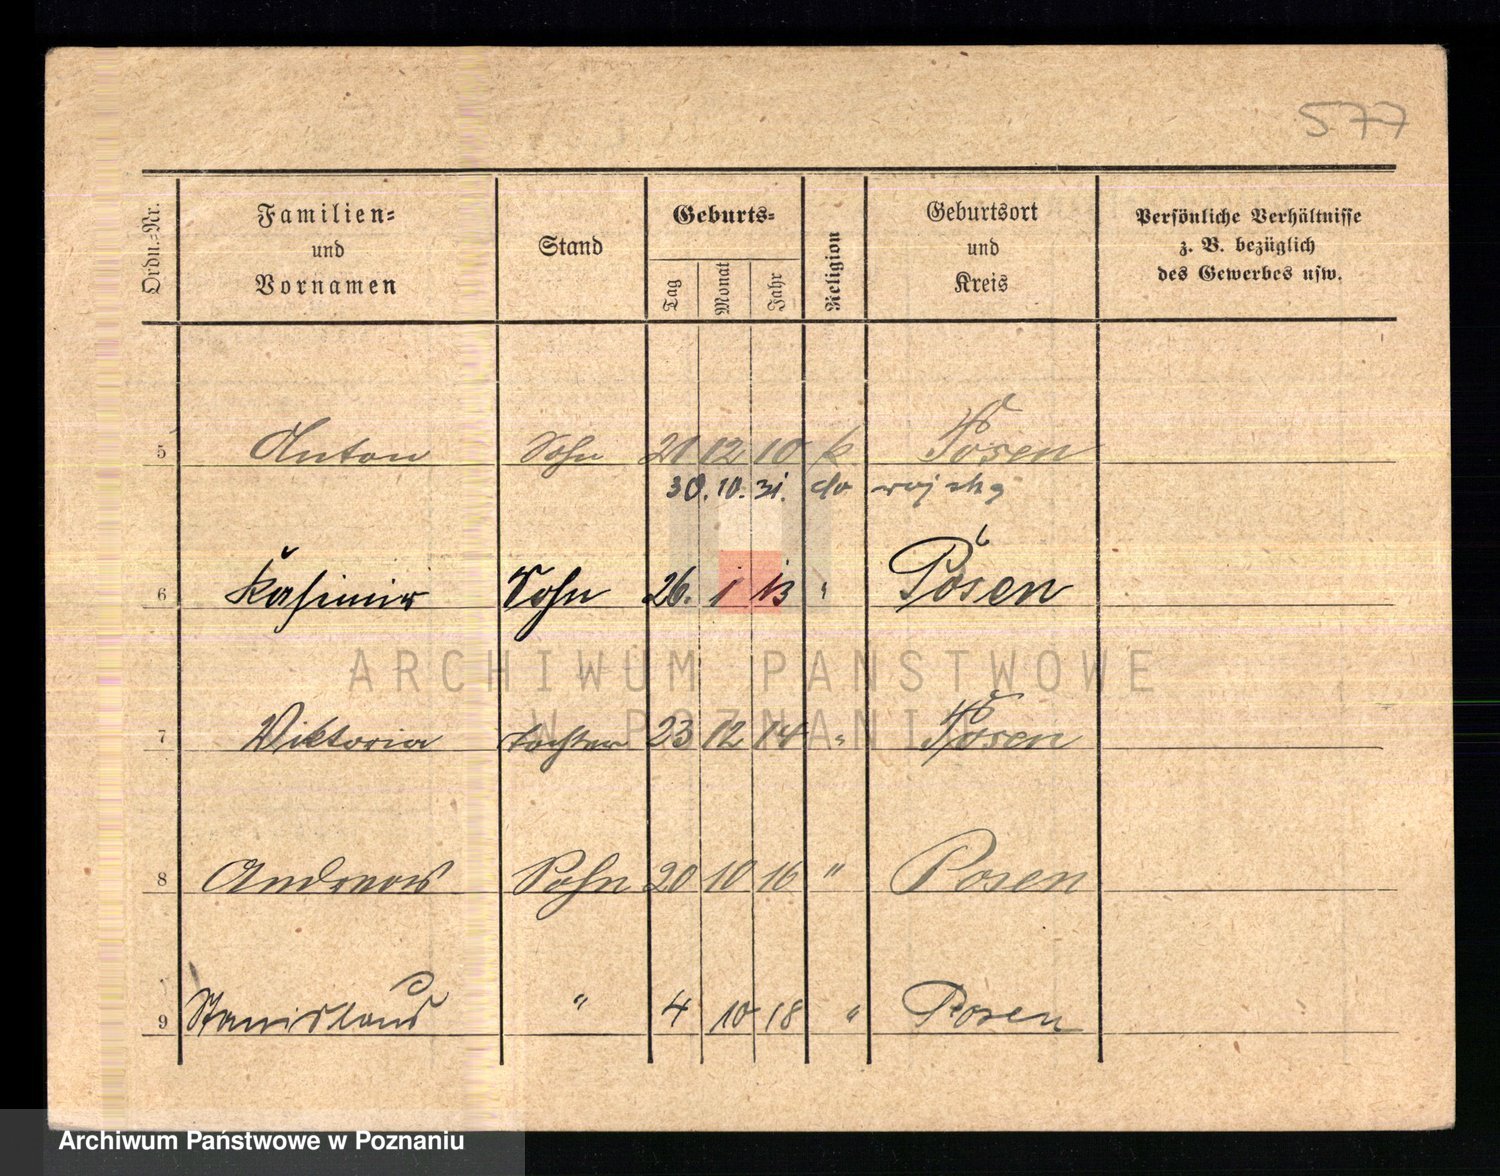 577
Ordn.-Nr. Familien- und Vornamen Stand Geburts- Tag Monat Jahr Religion Geburtsort und Kreis Persönliche Verhältnisse z. B. bezüglich des Gewerbes usw.
5 Anton Sohn 21 12 10 k Posen
30. 10. 31. do wojska
6 Kasimir Sohn 26. 1 13 " Posen
ARCHIWUM PAŃSTWOWE
W POZNANIU
7 Viktoria Tochter 23 12 14 " Posen
8 Andreas Sohn 20 10 16 " Posen
9 Stanislaus " 4 10 18 " Posen
Archiwum Państwowe w Poznaniu